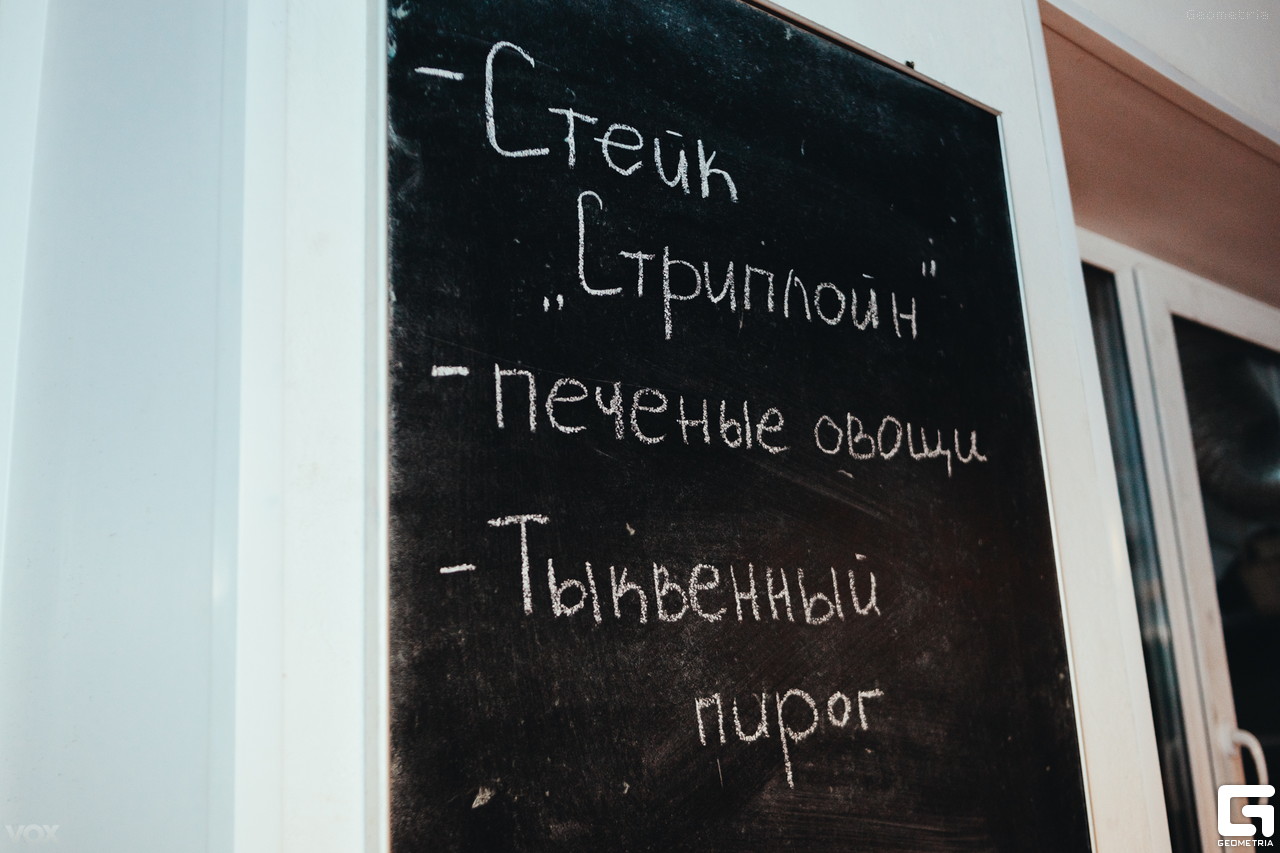 Geometria
- Стейк
„Стриплойн"
- печеные овощи
- Тыквенный
пирог
VOX
GEOMETRIA